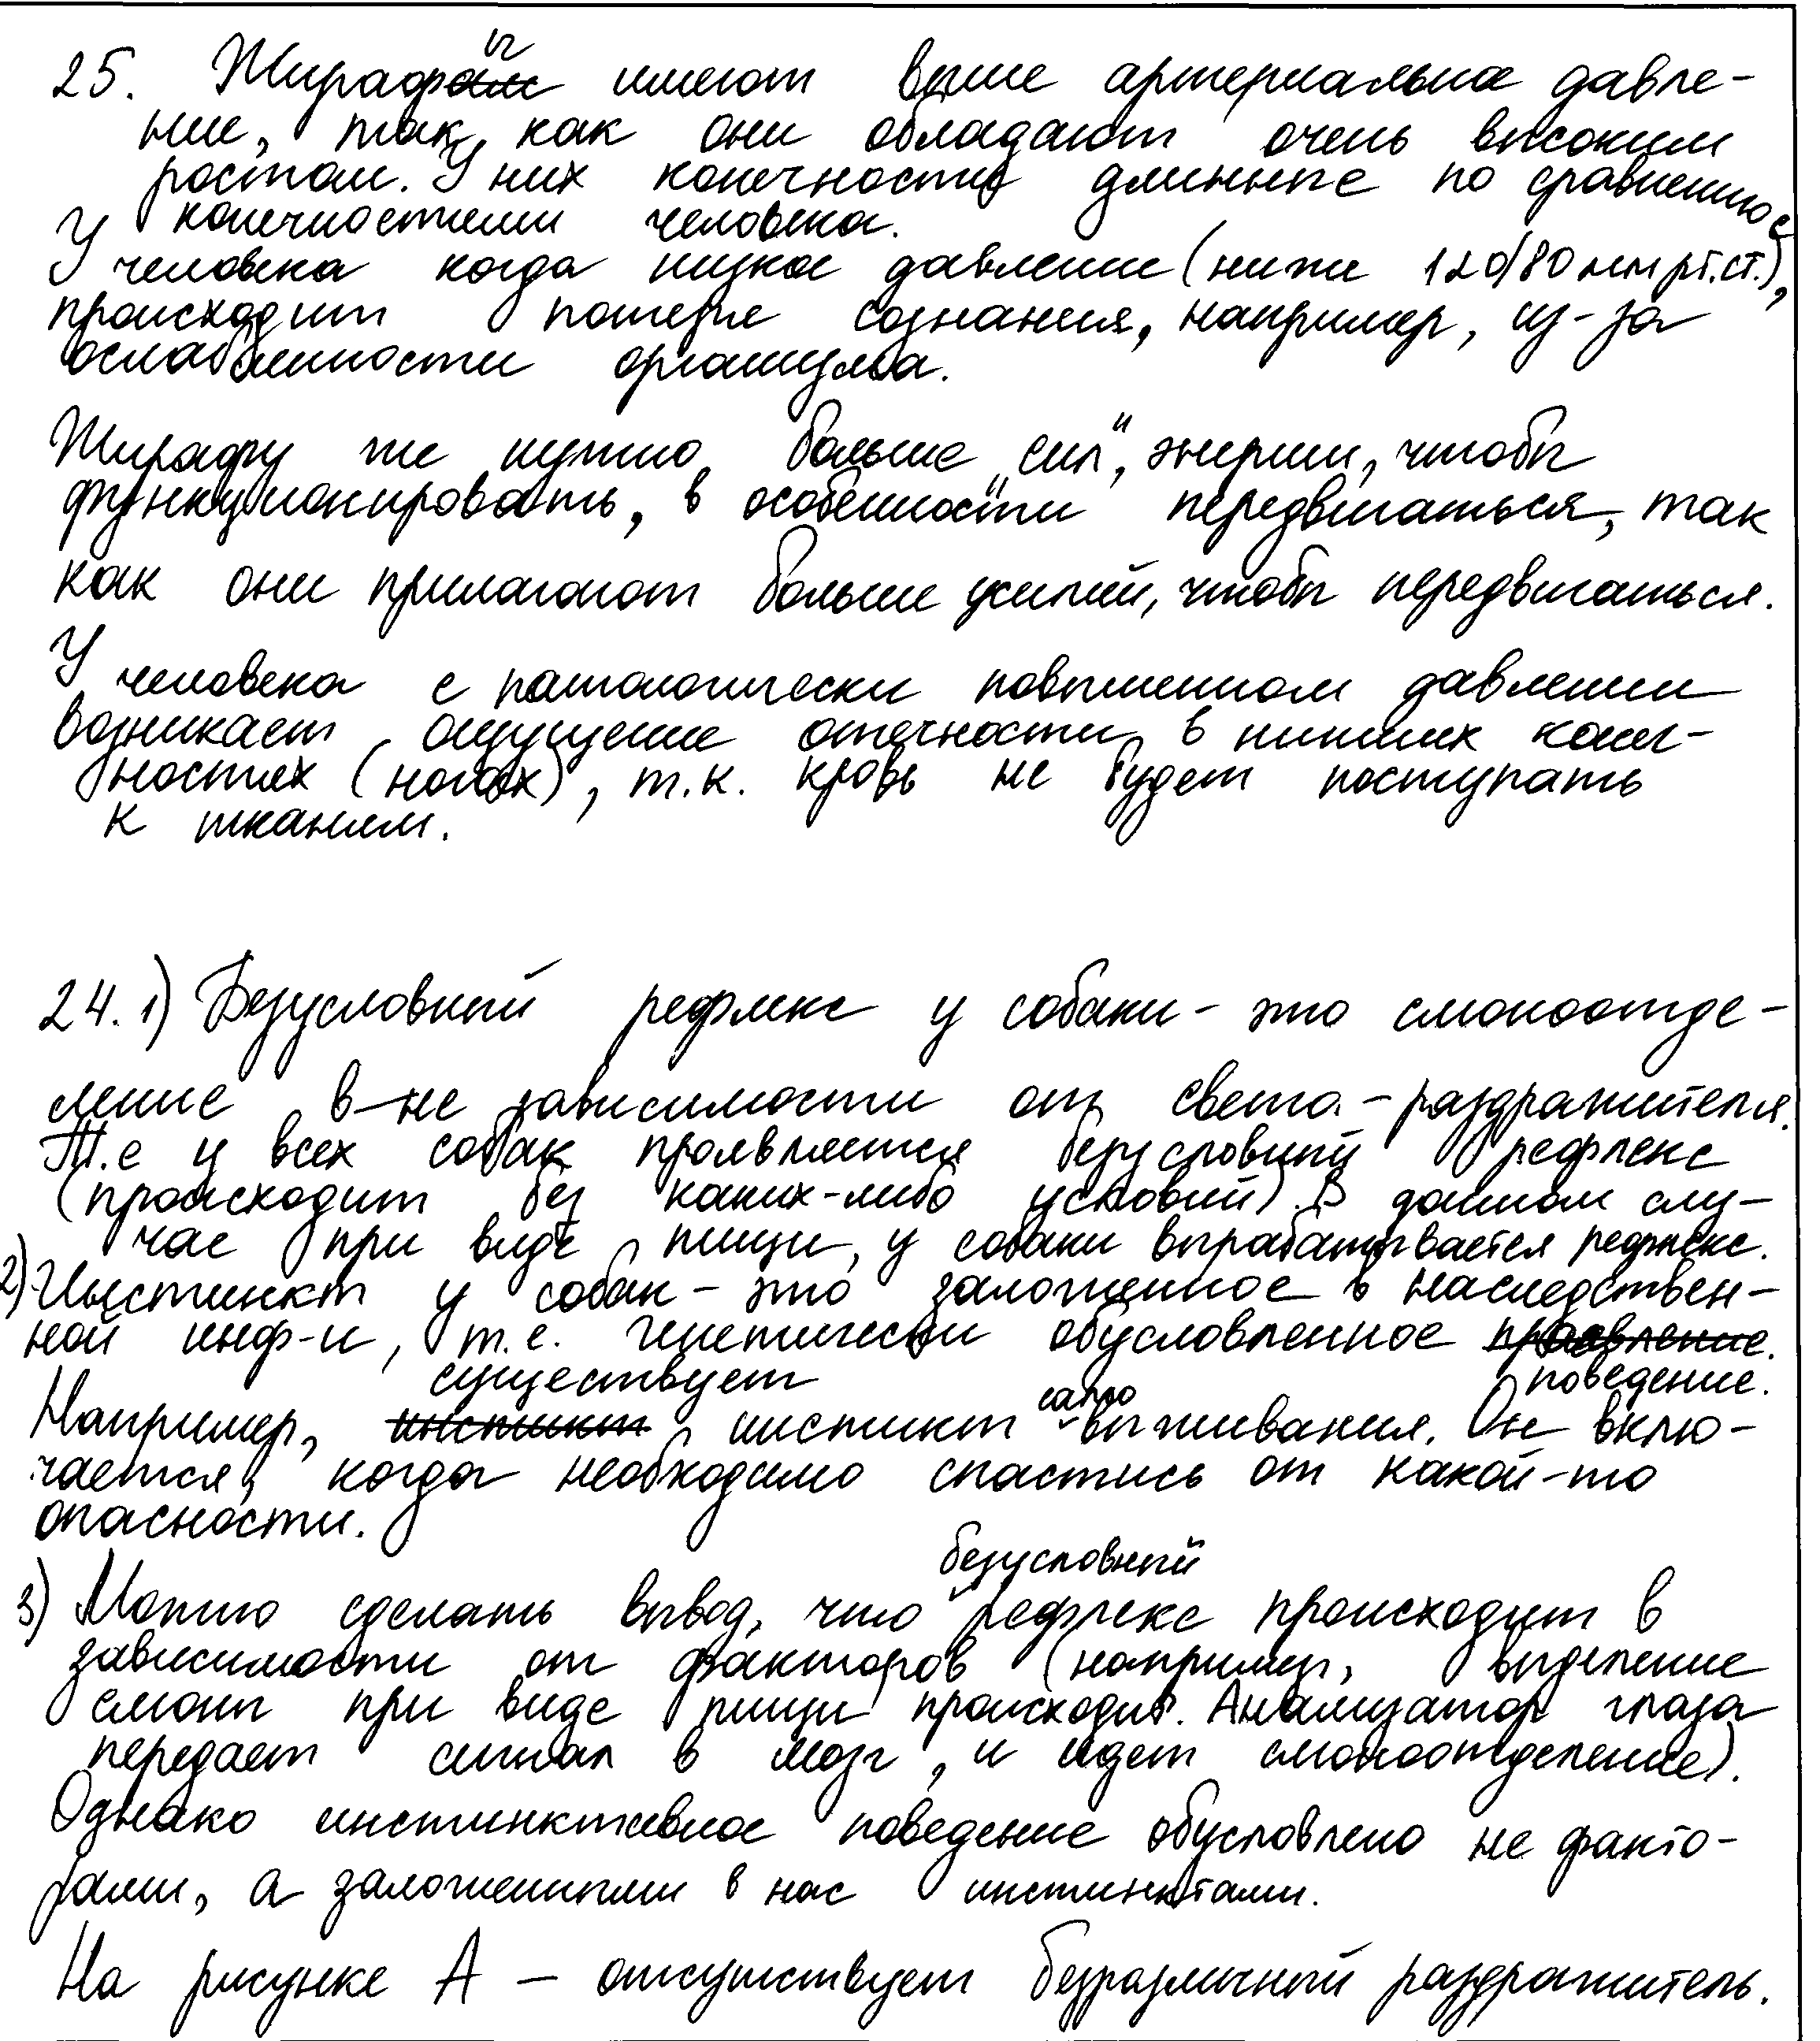 25. Жирафы имеют выше артериальное давле-
ние, так как они обладают очень высоким
ростом. У них конечности длинные по сравнению с
конечностями человека.
У человека когда низкое давление (ниже 120/80 мм рт.ст.),
происходит потеря сознания, например, из-за
ослабленности организма.
Жирафу же нужно больше „сил", энергии, чтобы
функционировать, в особенности передвигаться, так
как они прилагают больше усилий, чтобы передвигаться.
У человека с патологически повышенном давлении
возникает ощущение отечности в нижних конеч-
ностях (ногах), т.к. кровь не будет поступать
к тканям.
24. 1) Безусловный рефлекс у собаки - это слюноотде-
ление в-не зависимости от света-раздражителя.
Т.е у всех собак проявляется безусловный рефлекс
(происходит без каких-либо условий). В данном слу-
чае при виде пищи, у собаки вырабатывается рефлекс.
2) Инстинкт у собак - это заложенное в наследствен-
ной инф-и, т.е. генетически обусловленное поведение.
Например, существует инстинкт само-выживания. Он вклю-
чается, когда необходимо спастись от какой-то
опасности.
3) Можно сделать вывод, что безусловный рефлекс происходит в
зависимости от факторов (например, выделение
слюны при виде пищи происходит. Анализатор глаза
передает сигнал в мозг, и идет слюноотделение).
Однако инстинктивное поведение обусловлено не факто-
рами, а заложенными в нас инстинктами.
На рисунке А - отсутствует безразличный раздражитель.